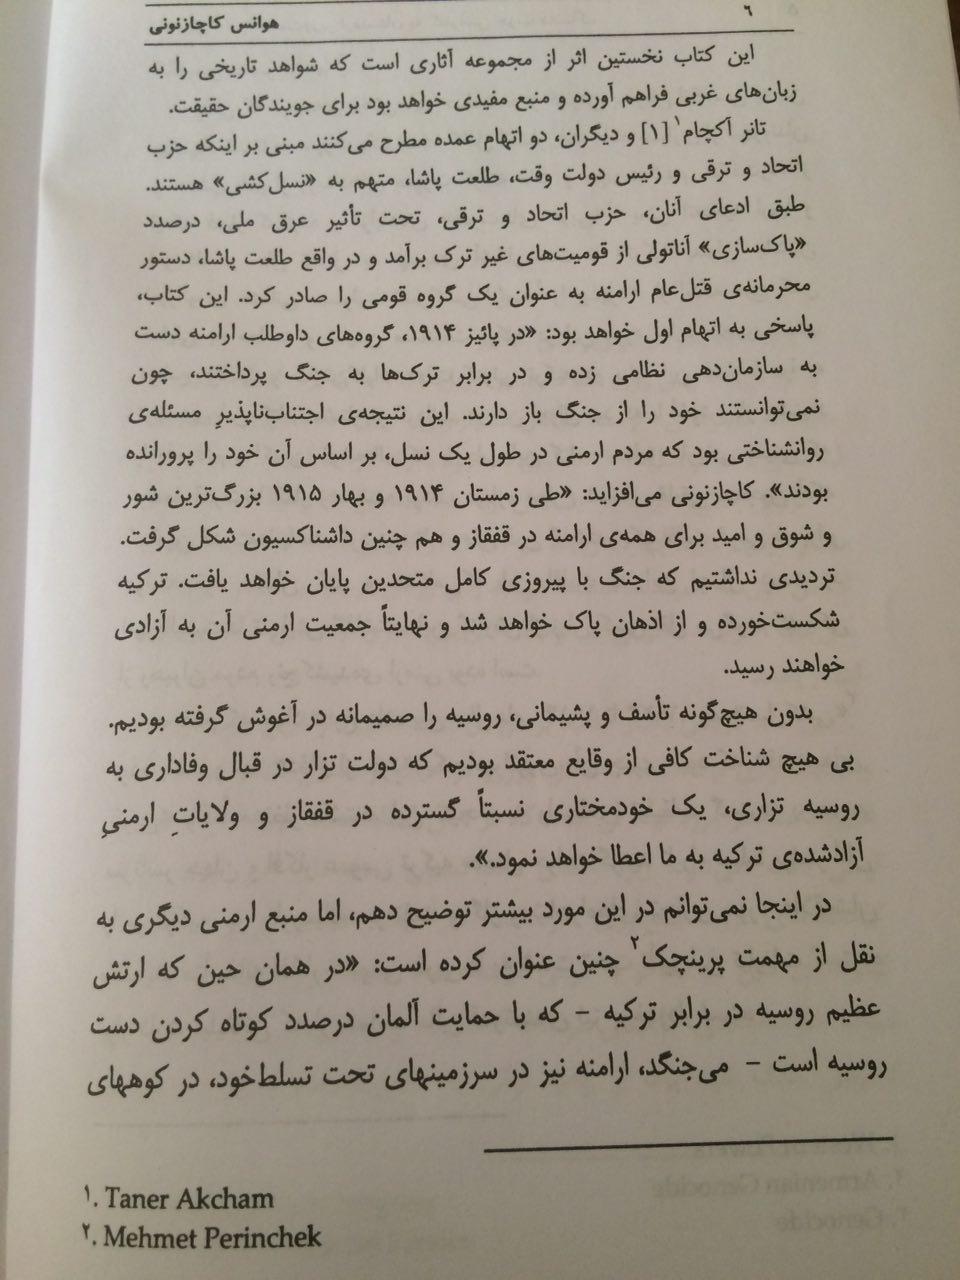 ۶
هوانس کاچازنونی
این کتاب نخستین اثر از مجموعه آثاری است که شواهد تاریخی را به
زبان‌های غربی فراهم آورده و منبع مفیدی خواهد بود برای جویندگان حقیقت.
تانر آکچام۱ [۱] و دیگران، دو اتهام عمده مطرح می‌کنند مبنی بر اینکه حزب
اتحاد و ترقی و رئیس دولت وقت، طلعت پاشا، متهم به «نسل‌کشی» هستند.
طبق ادعای آنان، حزب اتحاد و ترقی، تحت تأثیر عرق ملی، درصدد
«پاک‌سازی» آناتولی از قومیت‌های غیر ترک برآمد و در واقع طلعت پاشا، دستور
محرمانه‌ی قتل‌عام ارامنه به عنوان یک گروه قومی را صادر کرد. این کتاب،
پاسخی به اتهام اول خواهد بود: «در پائیز ۱۹۱۴، گروه‌های داوطلب ارامنه دست
به سازمان‌دهی نظامی زده و در برابر ترک‌ها به جنگ پرداختند، چون
نمی‌توانستند خود را از جنگ باز دارند. این نتیجه‌ی اجتناب‌ناپذیرِ مسئله‌ی
روانشناختی بود که مردم ارمنی در طول یک نسل، بر اساس آن خود را پرورانده
بودند». کاچازنونی می‌افزاید: «طی زمستان ۱۹۱۴ و بهار ۱۹۱۵ بزرگ‌ترین شور
و شوق و امید برای همه‌ی ارامنه در قفقاز و هم چنین داشناکسیون شکل گرفت.
تردیدی نداشتیم که جنگ با پیروزی کامل متحدین پایان خواهد یافت. ترکیه
شکست‌خورده و از اذهان پاک خواهد شد و نهایتاً جمعیت ارمنی آن به آزادی
خواهند رسید.
بدون هیچ‌گونه تأسف و پشیمانی، روسیه را صمیمانه در آغوش گرفته بودیم.
بی هیچ شناخت کافی از وقایع معتقد بودیم که دولت تزار در قبال وفاداری به
روسیه تزاری، یک خودمختاری نسبتاً گسترده در قفقاز و ولایاتِ ارمنیِ
آزادشده‌ی ترکیه به ما اعطا خواهد نمود.».
در اینجا نمی‌توانم در این مورد بیشتر توضیح دهم، اما منبع ارمنی دیگری به
نقل از مهمت پرینچک۲ چنین عنوان کرده است: «در همان حین که ارتش
عظیم روسیه در برابر ترکیه – که با حمایت آلمان درصدد کوتاه کردن دست
روسیه است – می‌جنگد، ارامنه نیز در سرزمینهای تحت تسلط‌خود، در کوههای
۱. Taner Akcham
۲. Mehmet Perinchek